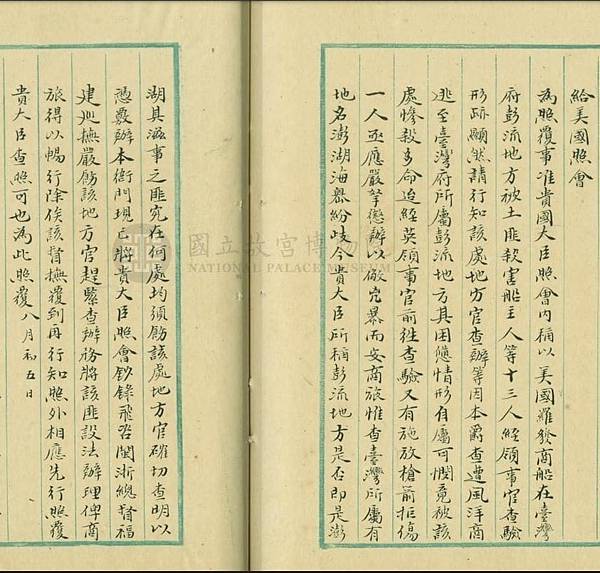 給美國照會
為照覆事准貴國大臣照會內稱以美國羅發商船在臺灣
府彭流地方被土匪殺害船主人等十三人經領事官查驗
形跡顯然請行知該處地方官查辦等因本爵查遭風洋商
逃至臺灣府所屬彭流地方其困憊情形自屬可憫竟被該
處慘殺多命迨經英領事官前往查驗又有施放槍箭拒傷
一人亟應嚴拏懲辦以儆兇暴而安商旅惟查臺灣所屬有
地名澎湖海嶴紛歧今貴大臣所稱彭流地方是否即是澎
湖具滋事之匪究在何處均須飭該處地方官確切查明以
憑覈辦本衙門現已將貴大臣照會鈔錄飛咨閩浙總督福
建巡撫嚴飭該地方官趕緊查辦務將該匪設法辦理俾商
旅得以暢行除俟該督撫覆到再行知照外相應先行照覆
貴大臣查照可也為此照覆八月初五日
國立故宮博物院
NATIONAL PALACE MUSEUM